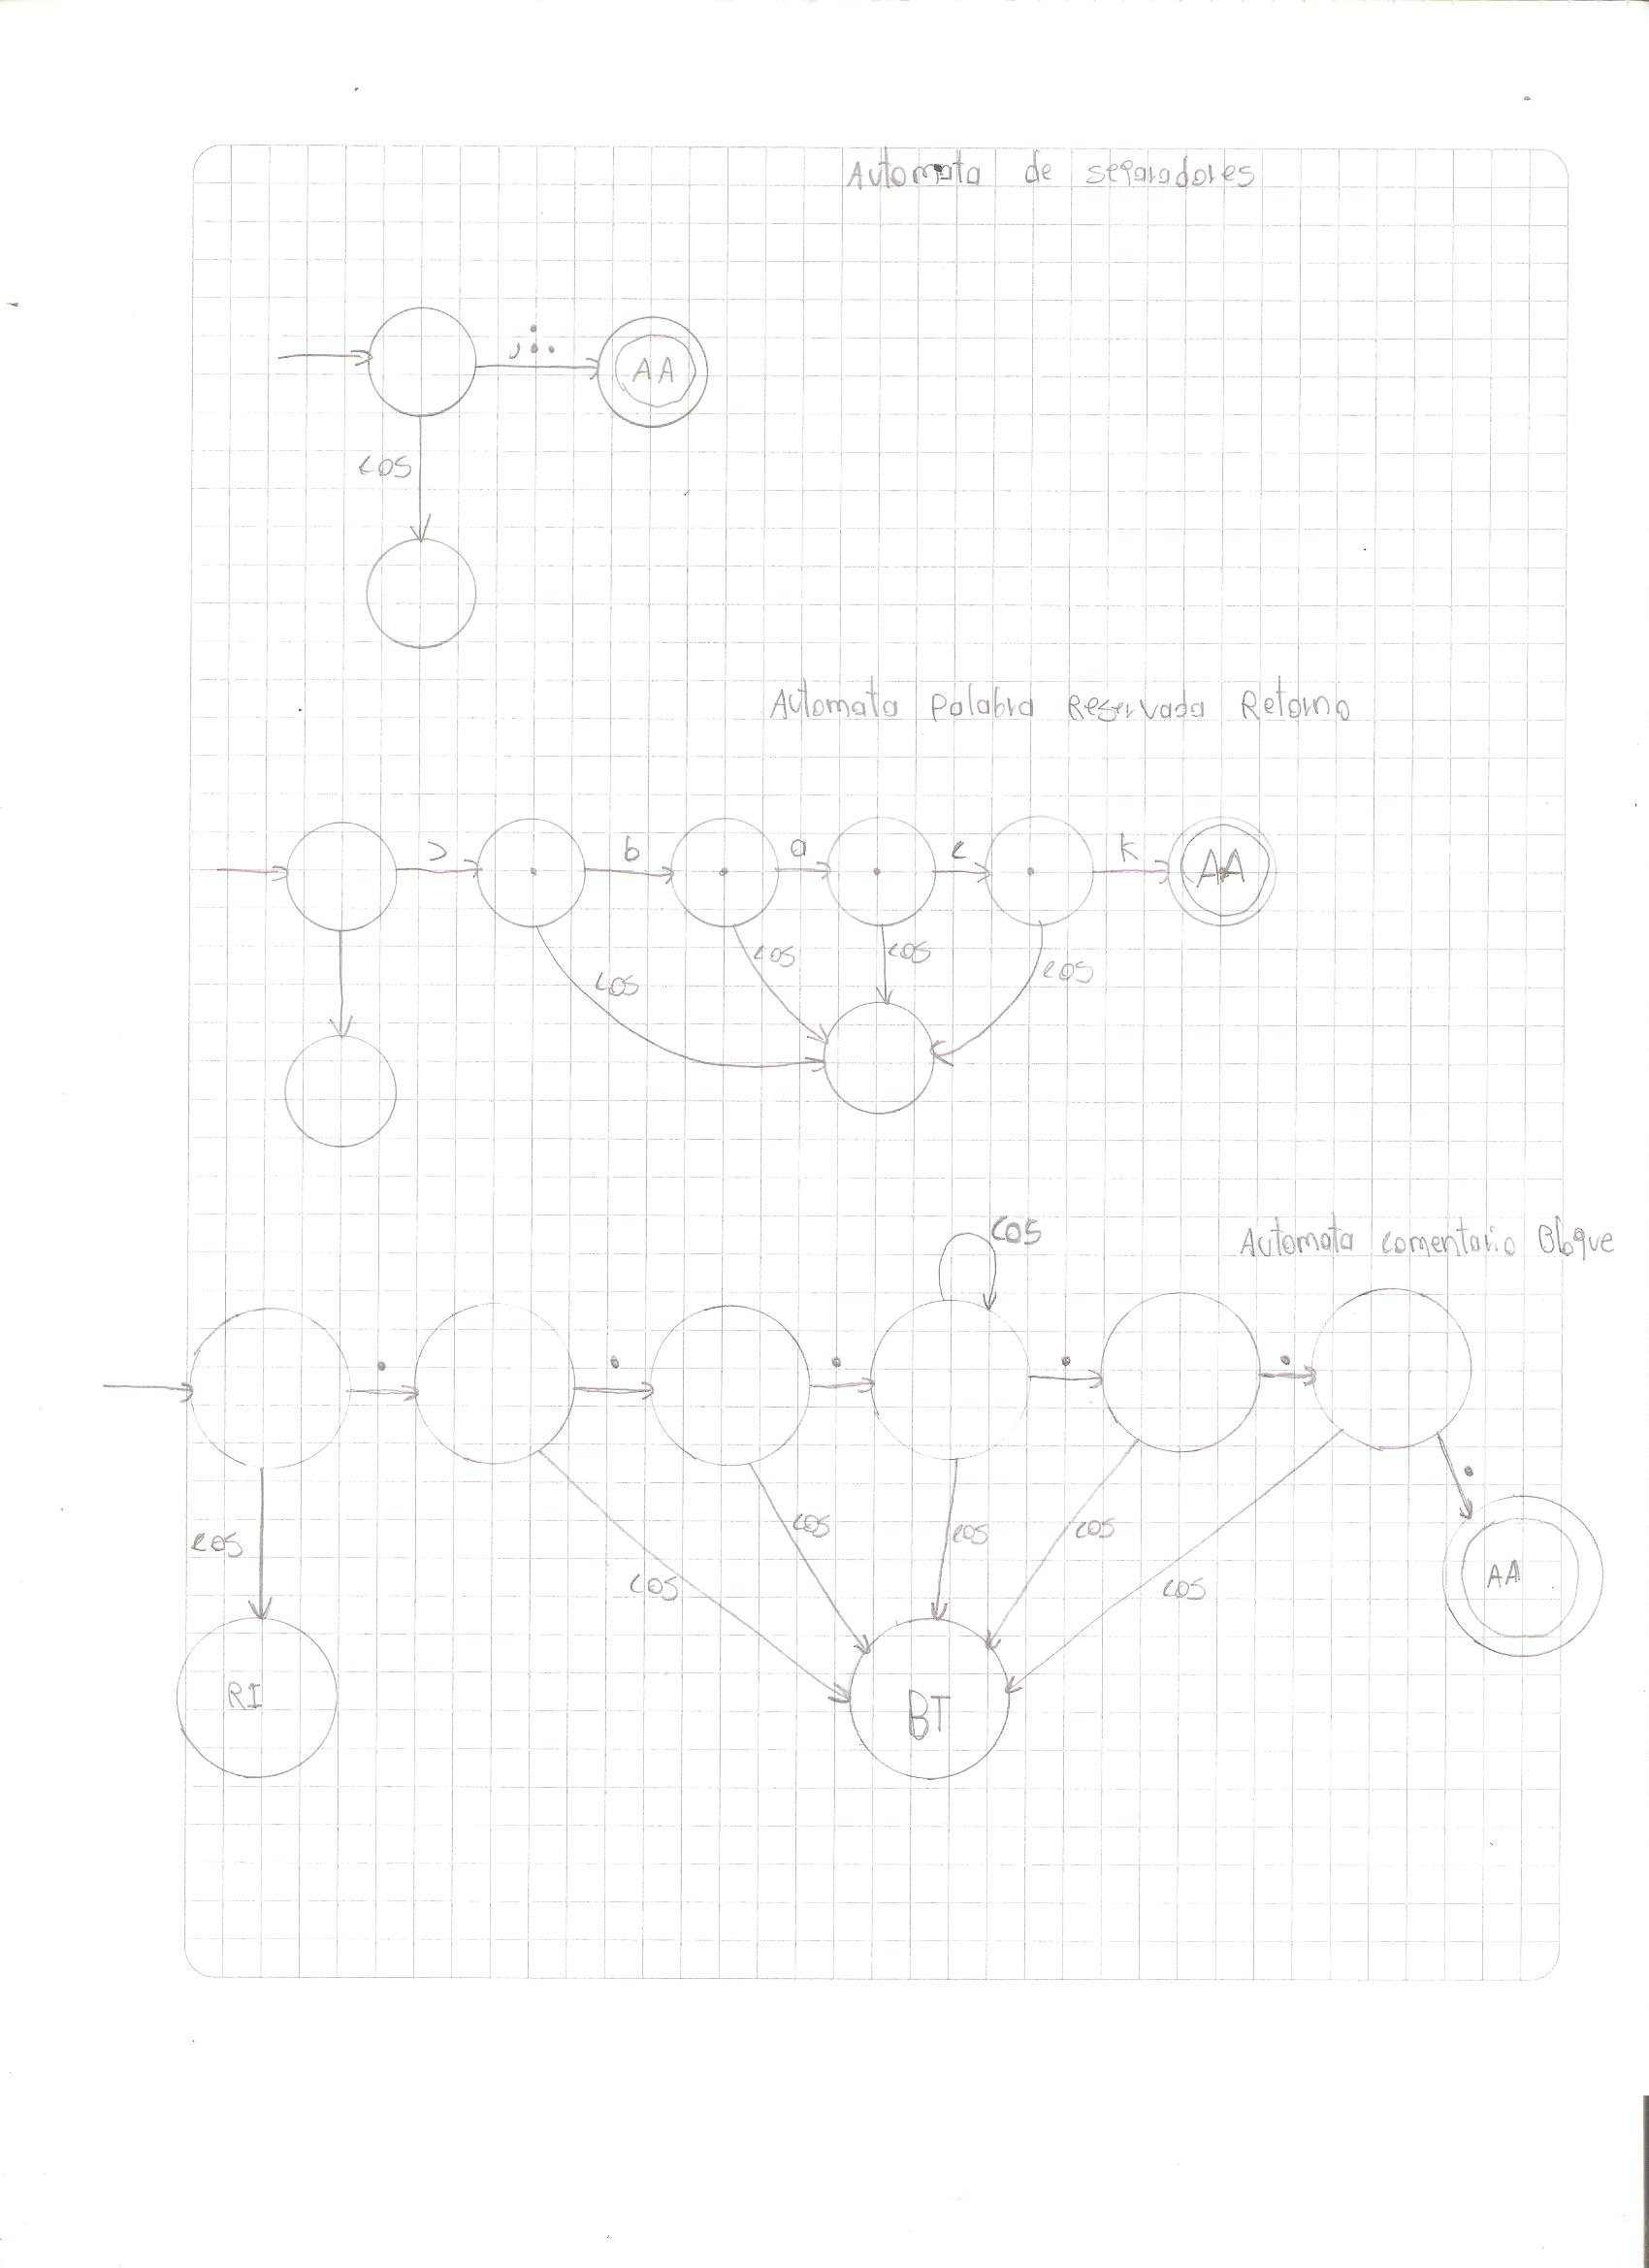 Automata de separadores
, : .
AA
cos
Automata Palabra Reservada Retorno
> b a c k AA
cos cos cos cos
cos
Automata comentario Bloque
. . . . .
.
cos cos cos cos cos cos
AA
RI BT